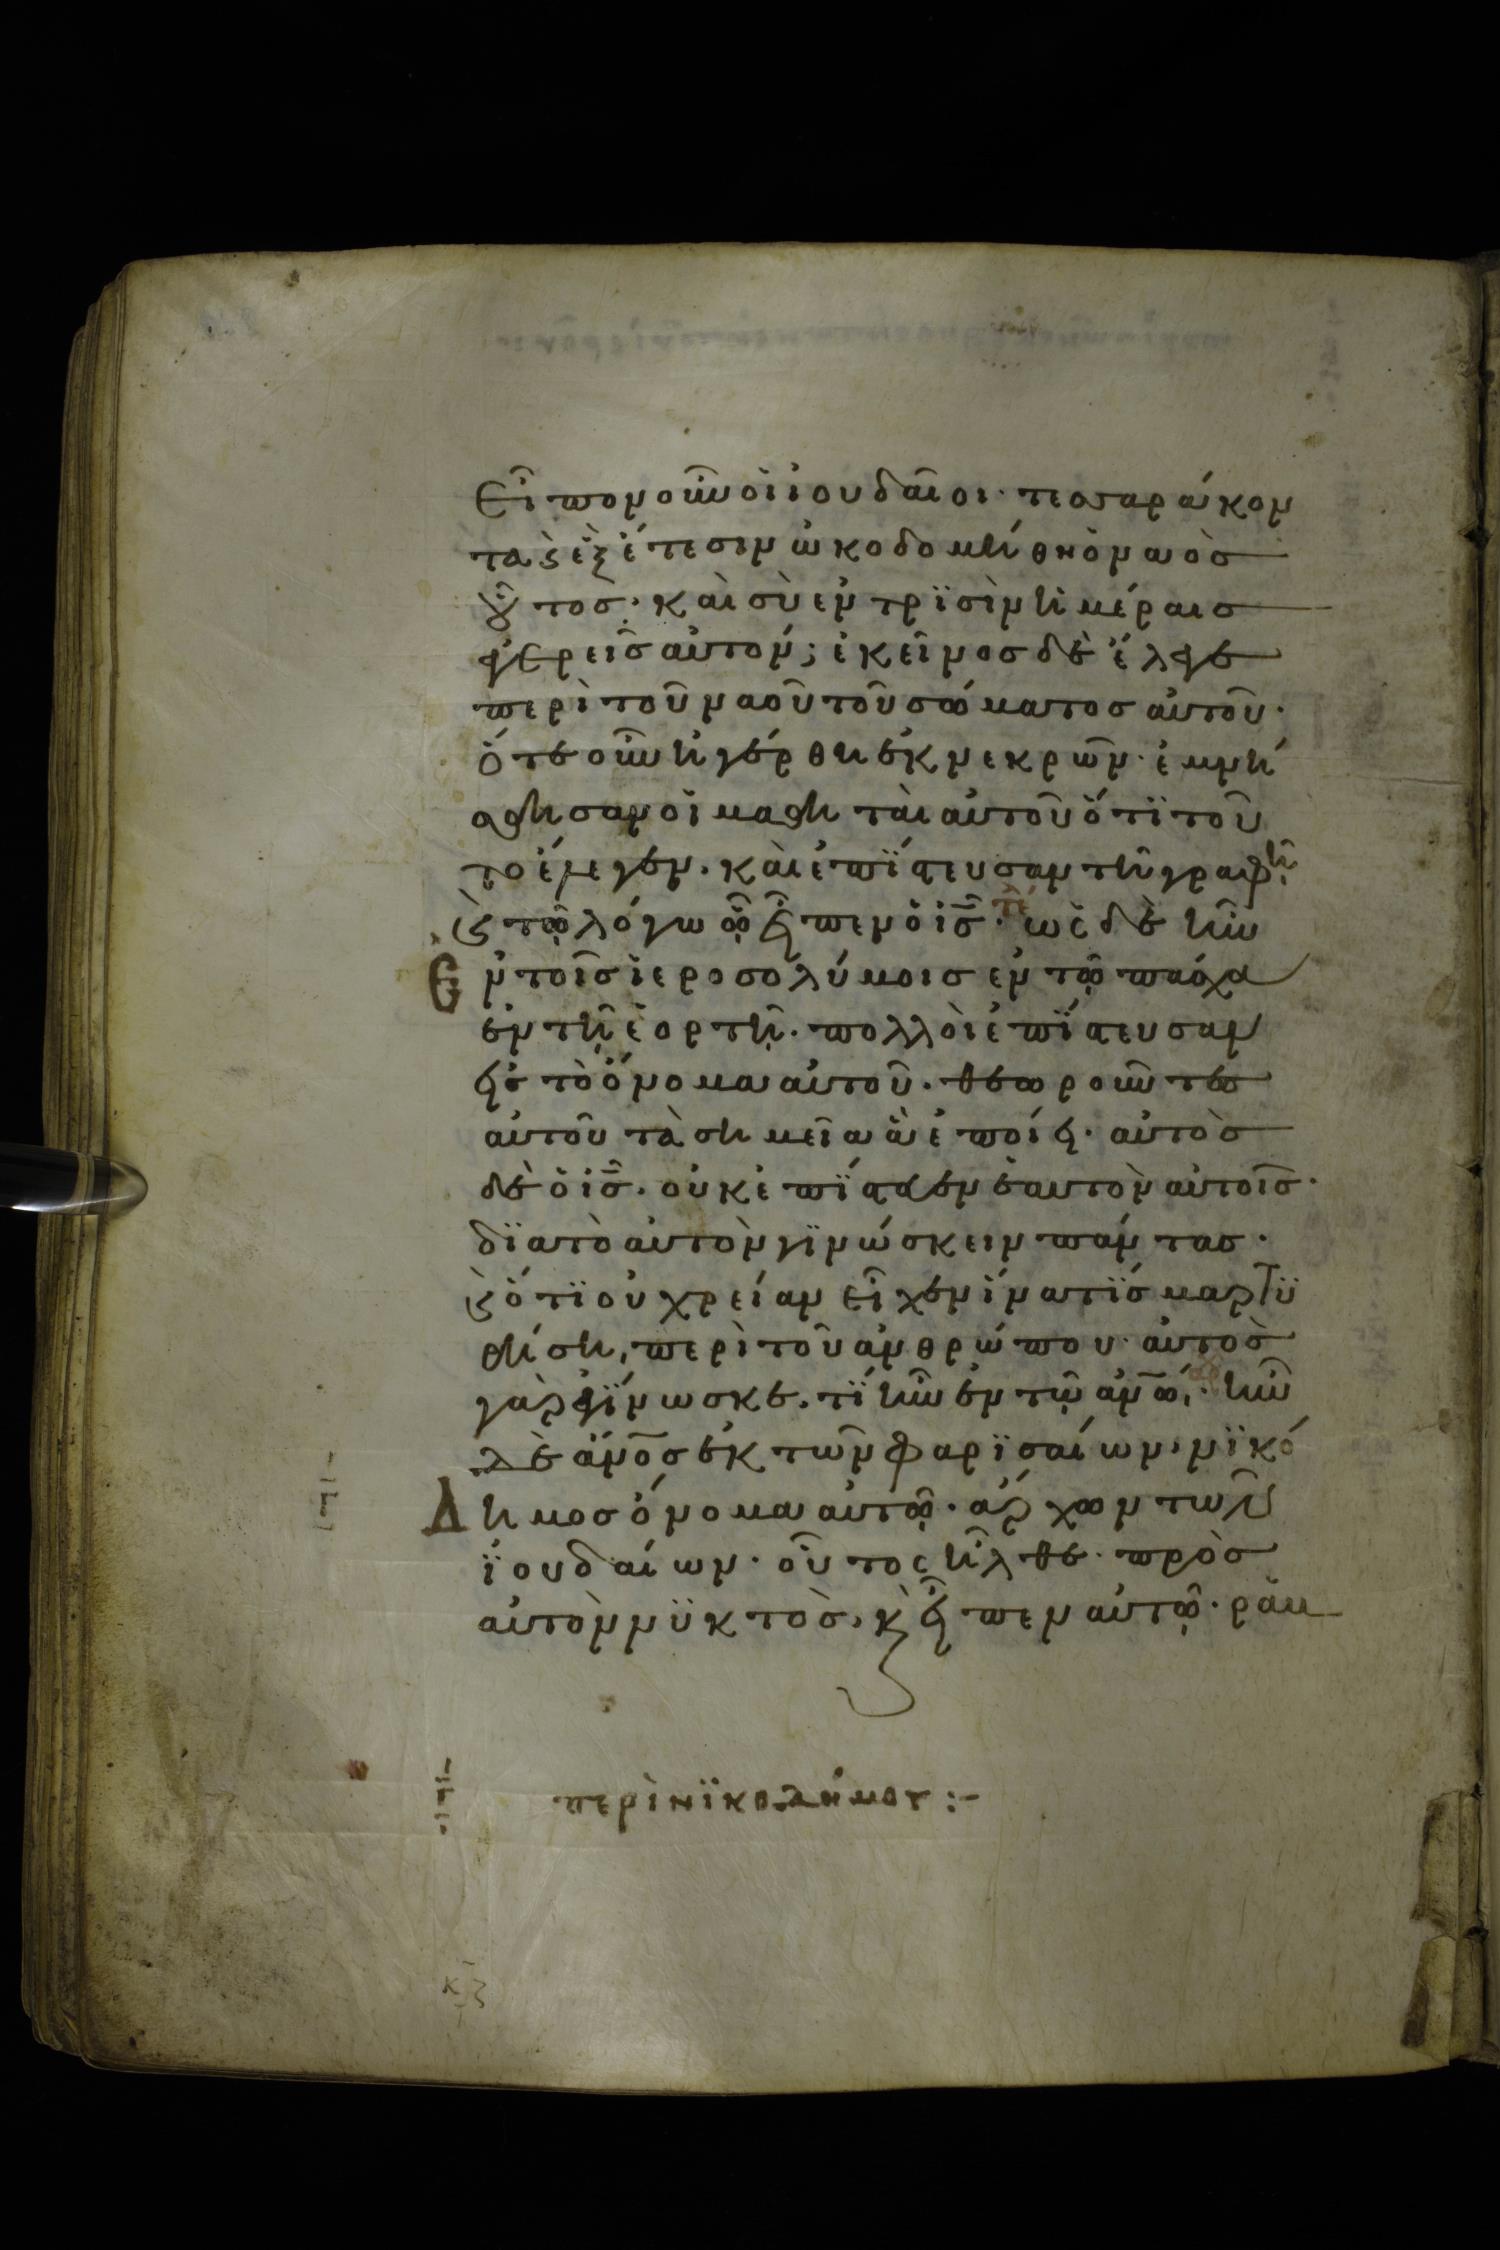 Εἶπον οὖν οἱ ἰουδαῖοι· τεσσαράκον
τα ϗ ἓξ ἔτεσιν ὠκοδομήθη ὁ ναὸσ
οὗτοσ· καὶ σὺ ἐν τρϊσὶν ἡμέραισ
ἐγερεῖσ αὐτόν; ἐκεῖνοσ δὲ ἔλεγε
περὶ τοῦ ναοῦ τοῦ σώματοσ αὐτοῦ·
ὅτε οὖν ἠγέρθη ἐκ νεκρῶν· ἐμνή
σθησαν οἱ μαθηταὶ αὐτοῦ ὅτϊ τοῦ
το ἔλεγεν. καὶ ἐπΐστευσαν τῆ γραφῆ·
ϗ τῶ λόγω ὧ εἶπεν ὁ ισ̅· ὡς δὲ ἦν
Ἐν τοῖσ ἱεροσολύμοισ ἐν τῶ πάσχα
ἐν τῆ ἑορτῆ· πολλοὶ ἐπΐστευσαν
εἰσ τὸ ὄνομα αὐτοῦ· θεωροῦντεσ
αὐτοῦ τὰ σημεῖα ἃ ἐποίει· αὐτὸσ
δὲ ὁ ισ̅· οὐκ ἐπΐστευεν ἑαυτὸν αὐτοῖσ·
δϊὰ τὸ αὐτὸν γϊνώσκειν πάντασ·
ϗ ὅτϊ οὐ χρείαν εἶχεν ἵνα τϊσ μαρτϋ
ρήση, περὶ τοῦ ἀνθρώπου· αὐτὸσ
γὰρ ἐγΐνωσκε· τΐ ἦν ἐν τῶ ἀνω̅· ἦν
δὲ ἄνοσ̅ ἐκ τῶν φαρϊσαίων, νϊκό
Δημοσ ὄνομα αὐτῶ· ἄρχων τῶν
ϊουδαίων· οὗτος ἦλθε πρὸσ
αὐτὸν νϋκτὸσ, ϗ εἶπεν αὐτῶ· ραβ
περὶ νϊκοδήμου :-
κζ